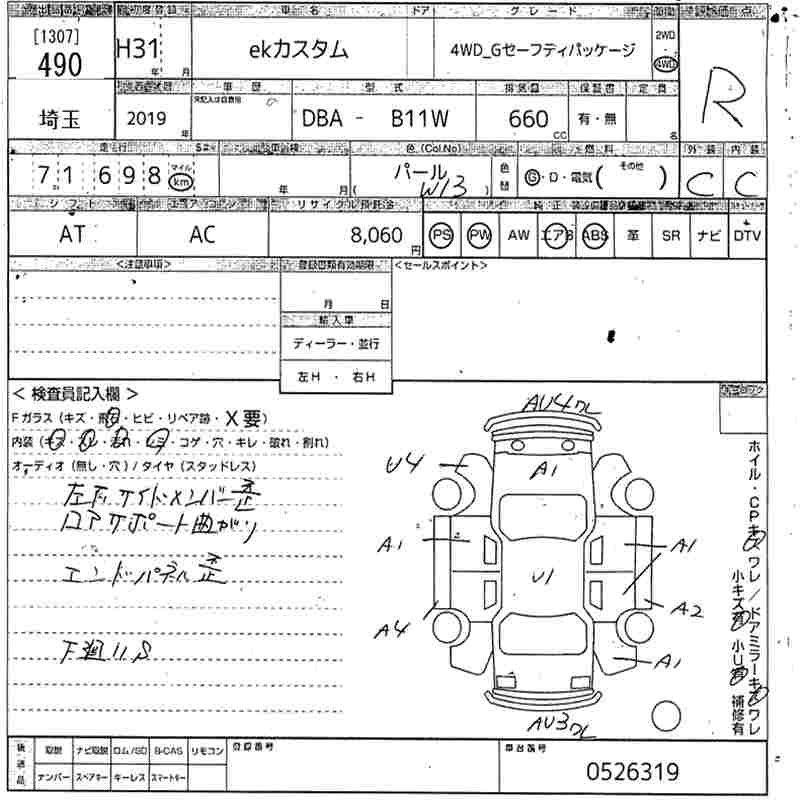 初度登録 車名 ドア グレード
[1307]
490
H31 年 月
ekカスタム
4WD_Gセーフティパッケージ
2WD
4WD
R
車歴 型式 排気量 保証書 定員
埼玉
2019 年
DBA - B11W
660 CC
有・無
名
走行 車検 色 (Col.No) 燃料 外装 内装
71,698 マイル km
年 月
パール
(W13)
色替
G・D・電気( その他 )
C C
シフト エアコン リサイクル預託金 純正装備
AT
AC
8,060 円
PS PW AW エアB ABS 革 SR ナビ DTV
<注意事項> 登録書類有効期限 <セールスポイント>
月 日
輸入車
ディーラー・並行
左H ・ 右H
< 検査員記入欄 >
Fガラス (キズ・飛石・ヒビ・リペア跡・X要)
内装 (キズ・汚れ・コゲ・穴・キレ・破れ・割れ)
オーディオ (無し・穴) / タイヤ (スタッドレス)
左下サイドメンバー歪
コアサポート曲がり
エンドパネル歪
下廻りS
AU4
U4
A1
A1
A1
U1
A2
A4
A1
AU3
ホイル・CPキズワレ/ドアミラーキズワレ
小キズ有 小U有 補修有
後送品
取説 ナビ取説 ロム/SD B-CAS リモコン
ナンバー スペアキー キーレス スマートキー
登録番号
車台番号
0526319